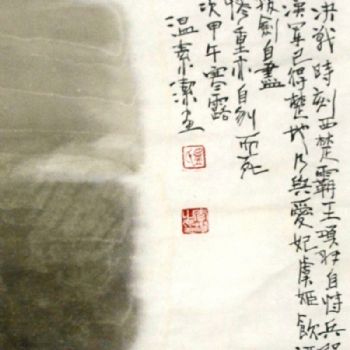 決戰時刻西楚霸王項羽自恃兵
漢軍已得楚地乃與愛妃虞姬飲
拔劍自盡
慘重亦自刎而死
次甲午寒露
溫素潔画